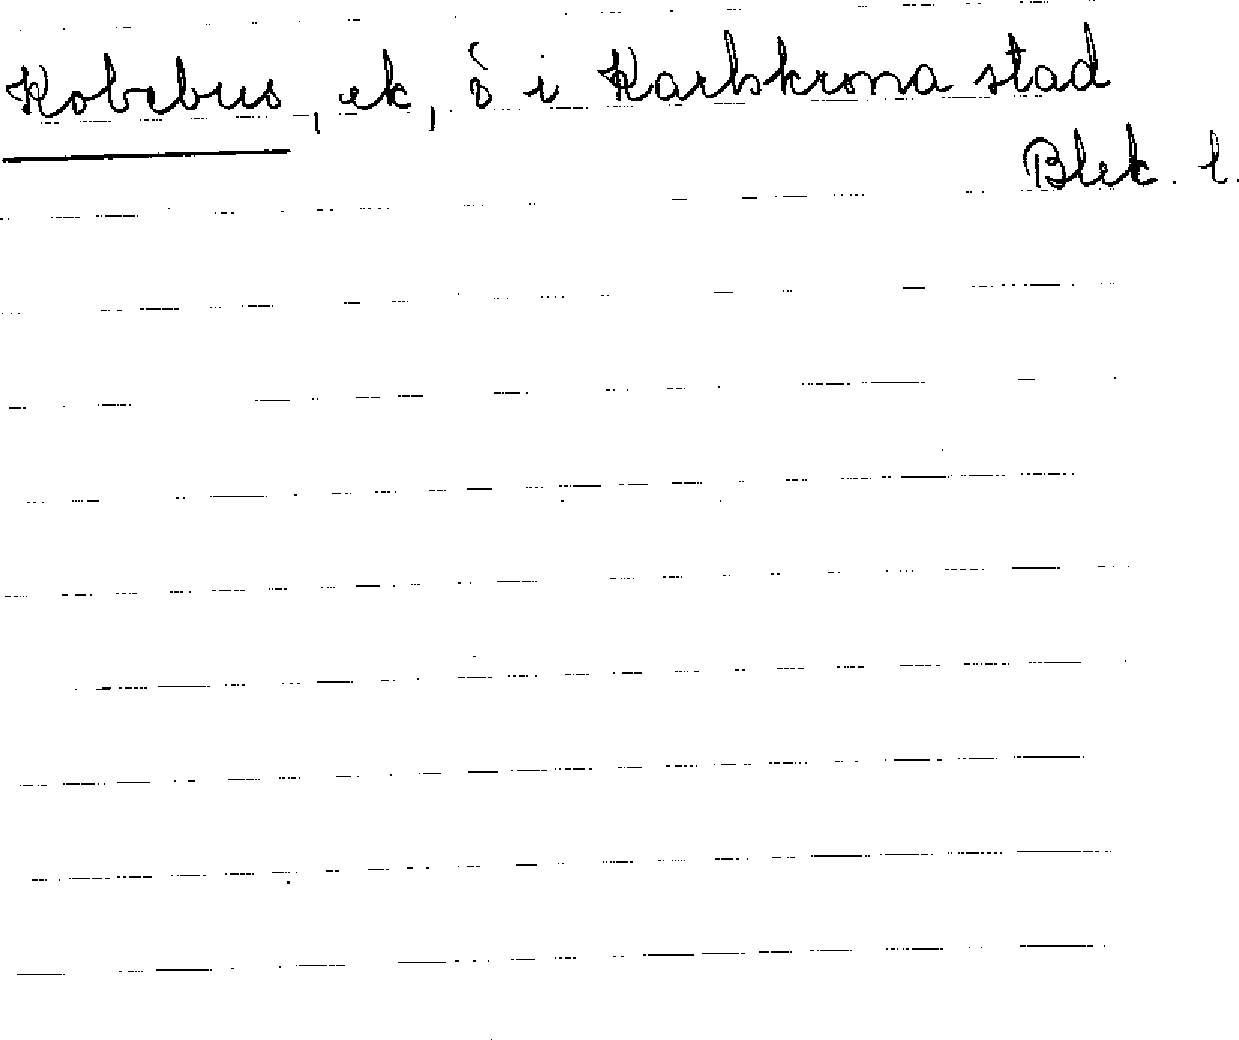 Kobebus, ek, ö i Karlskrona stad
Blek. l.